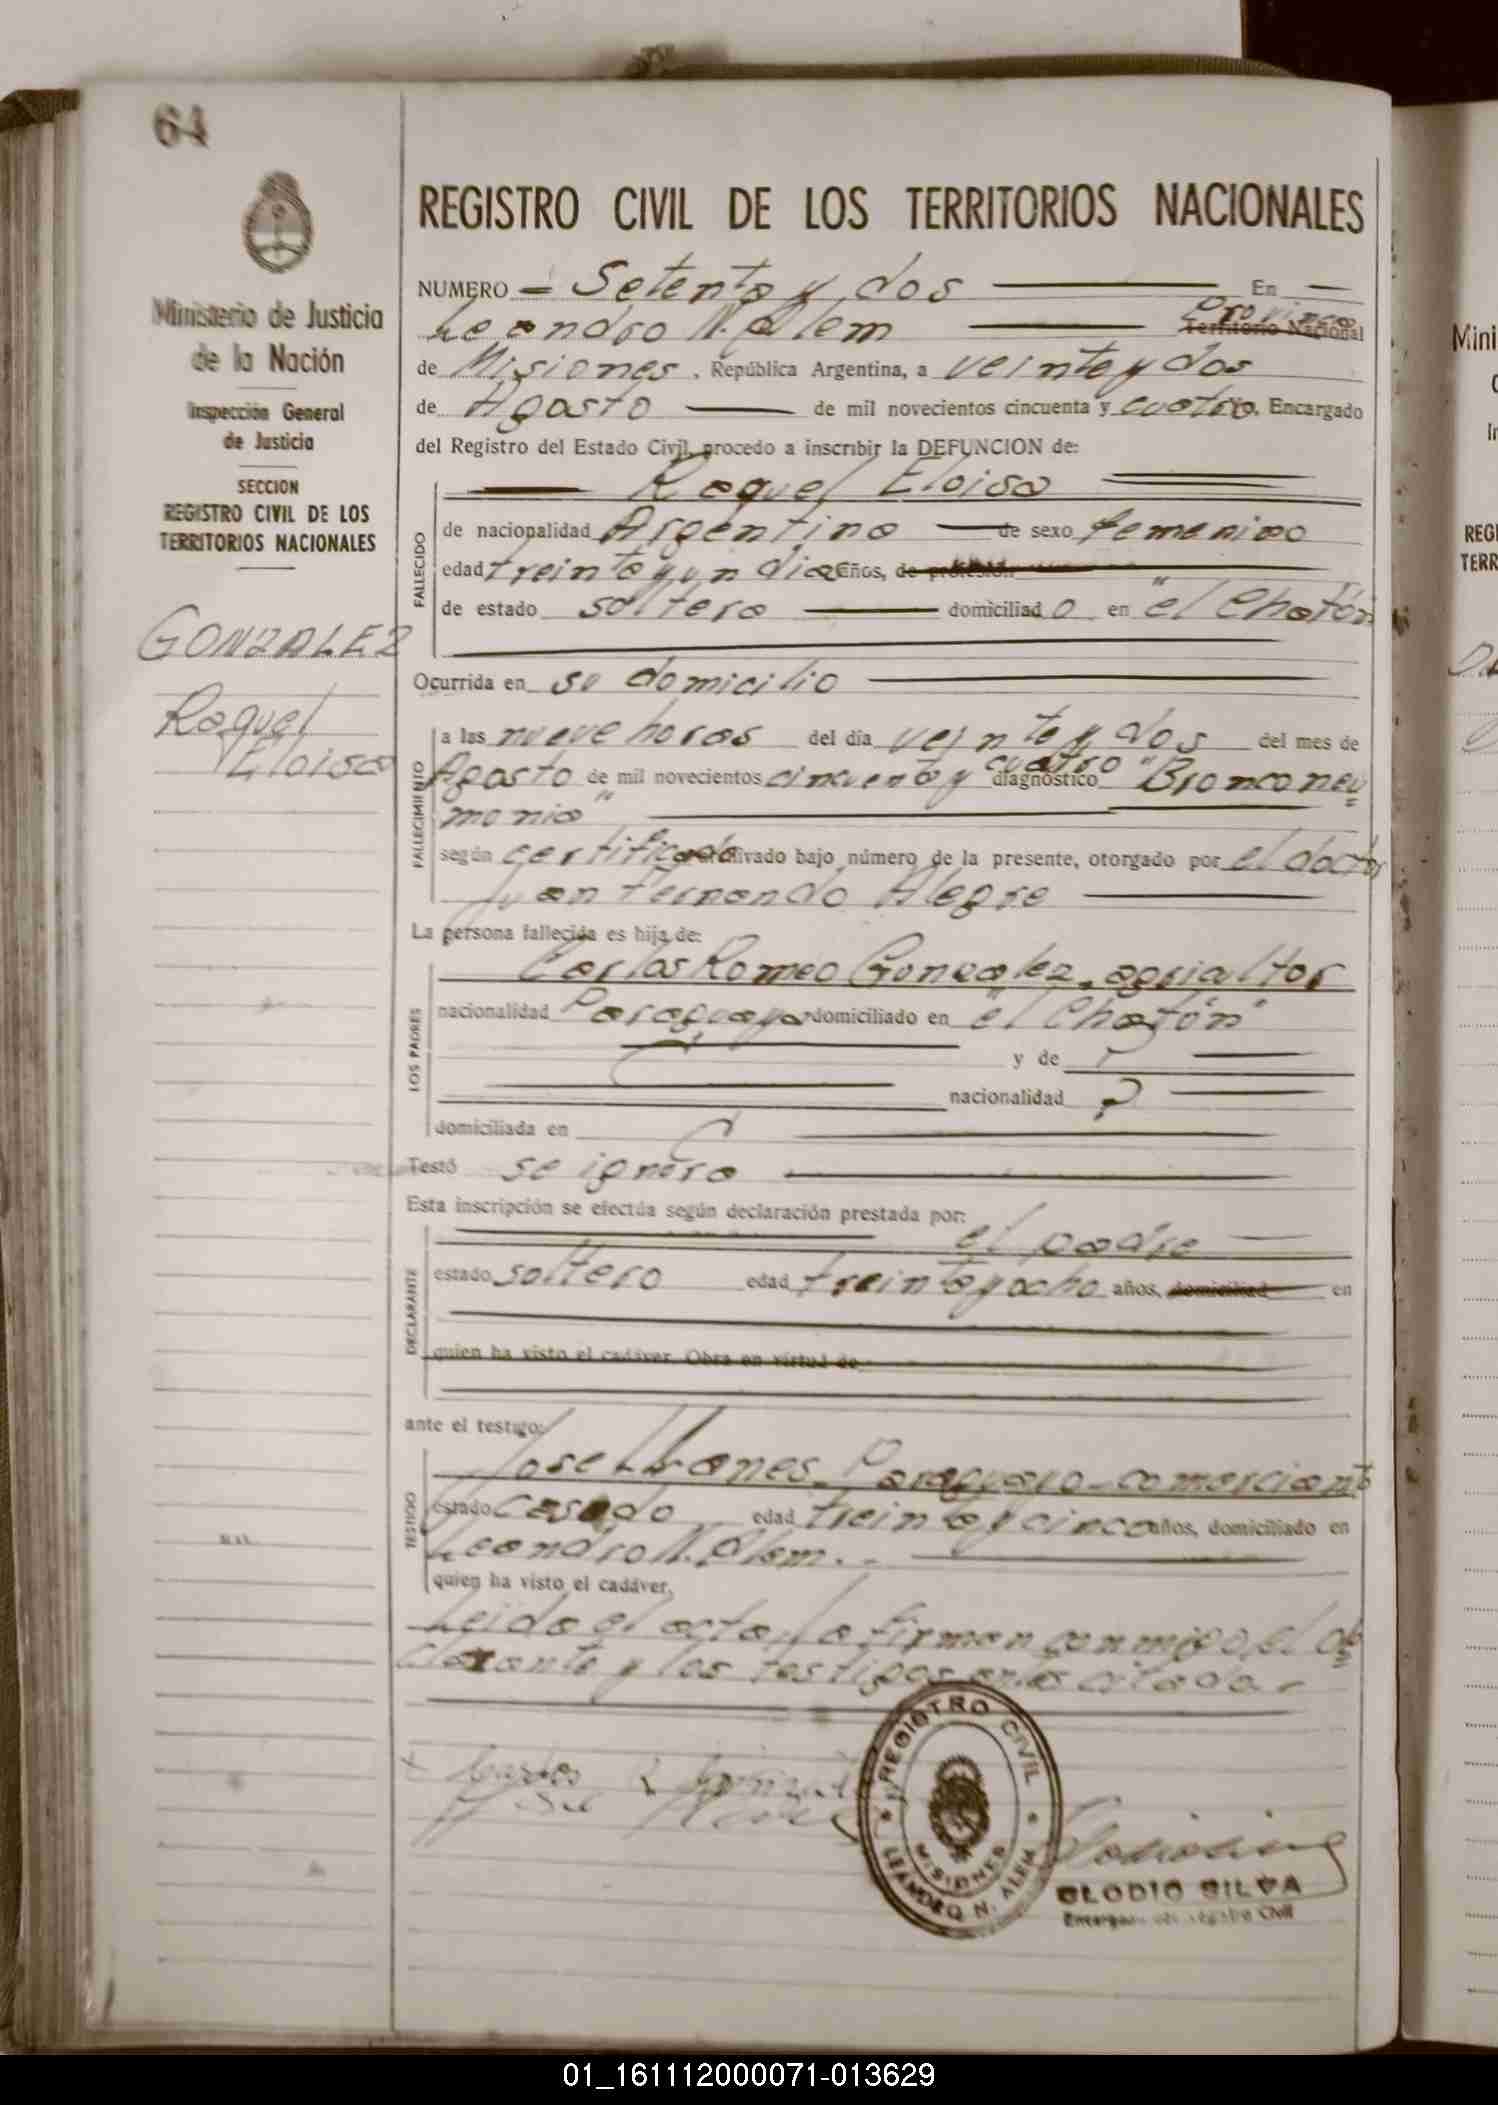 64
Ministerio de Justicia
de la Nación
Inspección General
de Justicia
SECCION
REGISTRO CIVIL DE LOS
TERRITORIOS NACIONALES
GONZALEZ
Raquel
Eloisa
REGISTRO CIVIL DE LOS TERRITORIOS NACIONALES
NUMERO Setenta y dos En
Leandro N. Alem Provincia Territorio Nacional
de Misiones, República Argentina, a veinte y dos
de Agosto de mil novecientos cincuenta y cuatro, Yo, Encargado
del Registro del Estado Civil, procedo a inscribir la DEFUNCION de:
Raquel Eloisa
FALLECIDO
de nacionalidad Argentina de sexo femenino
edad treinta y un dias años, de profesión
de estado soltera domiciliado en "el Chatón
Ocurrida en su domicilio
FALLECIMIENTO
a las nueve horas del día veinte y dos del mes de
Agosto de mil novecientos cincuenta y cuatro diagnóstico "Bronconeu=
monia"
según certificado archivado bajo número de la presente, otorgado por el doctor
Juan Fernando Alegre
La persona fallecida es hija de:
LOS PADRES
Carlos Romeo Gonzalez, agricultor
nacionalidad Paraguaya domiciliado en "el Chatón"
y de
nacionalidad ?
domiciliada en
Testó se ignora
Esta inscripción se efectúa según declaración prestada por:
DECLARANTE
el padre
estado soltero edad treinta y ocho años, domiciliad en
quien ha visto el cadáver. Obra en virtud de
ante el testigo:
TESTIGO
Jose Llanes Paraguayo comerciante
estado Casado edad treinta y cinco años, domiciliado en
Leandro N. Alem.
quien ha visto el cadáver.
Leida el acta, la firman conmigo, el de=
clarante y los testigos antes citado.
REGISTRO CIVIL
MISIONES
LEANDRO N. ALEM
ELODIO SILVA
Encargado del Registro Civil
Mini
REGI
TERR
01_161112000071-013629